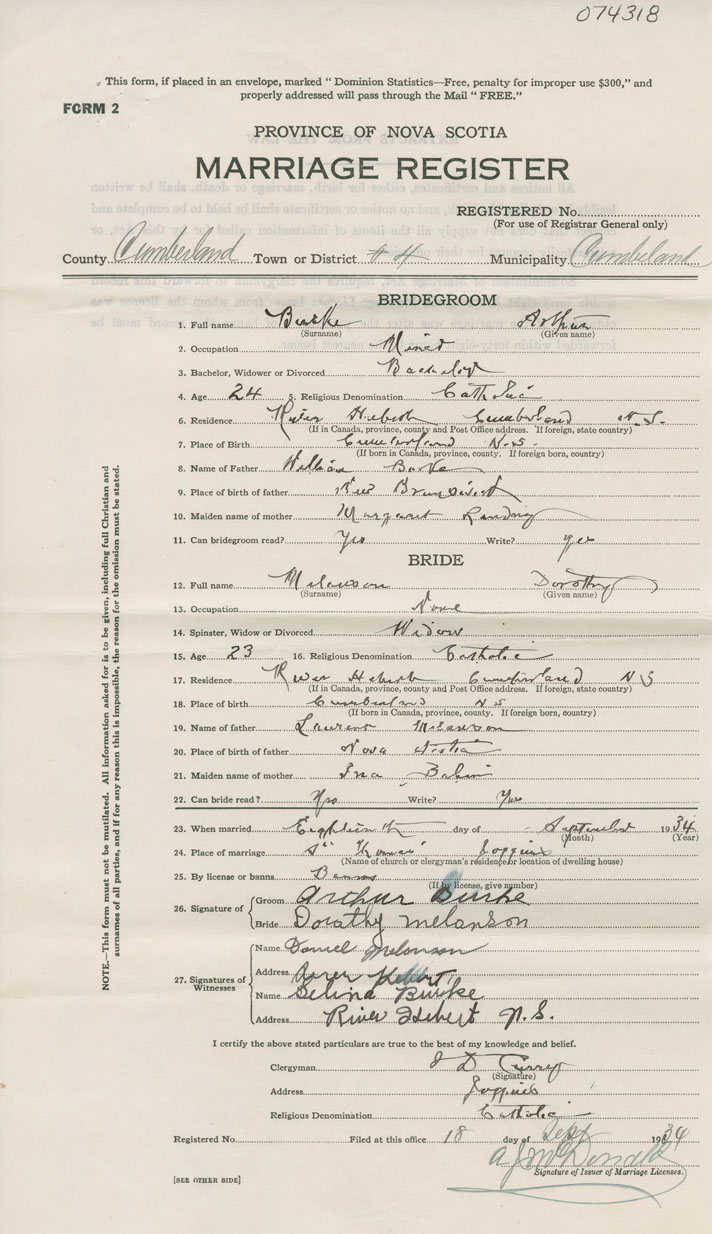 074318
This form, if placed in an envelope, marked "Dominion Statistics—Free, penalty for improper use $300," and
properly addressed will pass through the Mail "FREE."
FORM 2
PROVINCE OF NOVA SCOTIA
MARRIAGE REGISTER
REGISTERED No.
(For use of Registrar General only)
County Cumberland Town or District #4 Municipality Cumberland
BRIDEGROOM
1. Full name Burke Arthur
(Surname) (Given name)
2. Occupation Miner
3. Bachelor, Widower or Divorced Bachelor
4. Age 24 5. Religious Denomination Catholic
6. Residence River Hebert Cumberland N.S.
(If in Canada, province, county and Post Office address. If foreign, state country)
7. Place of Birth Cumberland N.S.
(If born in Canada, province, county. If foreign born, country)
8. Name of Father William Burke
9. Place of birth of father New Brunswick
10. Maiden name of mother Margaret Landry
11. Can bridegroom read? Yes Write? yes
BRIDE
12. Full name Melanson Dorothy
(Surname) (Given name)
13. Occupation None
14. Spinster, Widow or Divorced Widow
15. Age 23 16. Religious Denomination Catholic
17. Residence River Hebert Cumberland NS
(If in Canada, province, county and Post Office address. If foreign, state country)
18. Place of Birth Cumberland N.S.
(If born in Canada, province, county. If foreign born, country)
19. Name of father Laurent Melanson
20. Place of birth of father Nova Scotia
21. Maiden name of mother Ina
22. Can bride read? Yes Write? Yes
23. When married Eighteenth day of September 1934
(Month) (Year)
24. Place of marriage St Thomas' Joggins
(Name of church or clergyman's residence or location of dwelling house)
25. By license or banns Banns
(If by license, give number)
26. Signature of Groom Arthur Burke
Bride Dorathy melanson
27. Signatures of Witnesses Name Daniel Melanson
Address River Hebert
Name Selina Burke
Address River Hebert N.S.
I certify the above stated particulars are true to the best of my knowledge and belief.
Clergyman J D Curry
(Signature)
Address Joggins
Religious Denomination Catholic
Registered No. Filed at this office 18 day of Sept 1934
A. J. McDonald
Signature of Issuer of Marriage Licenses.
[SEE OTHER SIDE]
NOTE.—This form must not be mutilated. All information asked for is to be given, including full Christian and
surnames of all parties, and if for any reason this is impossible, the reason for the omission must be stated.